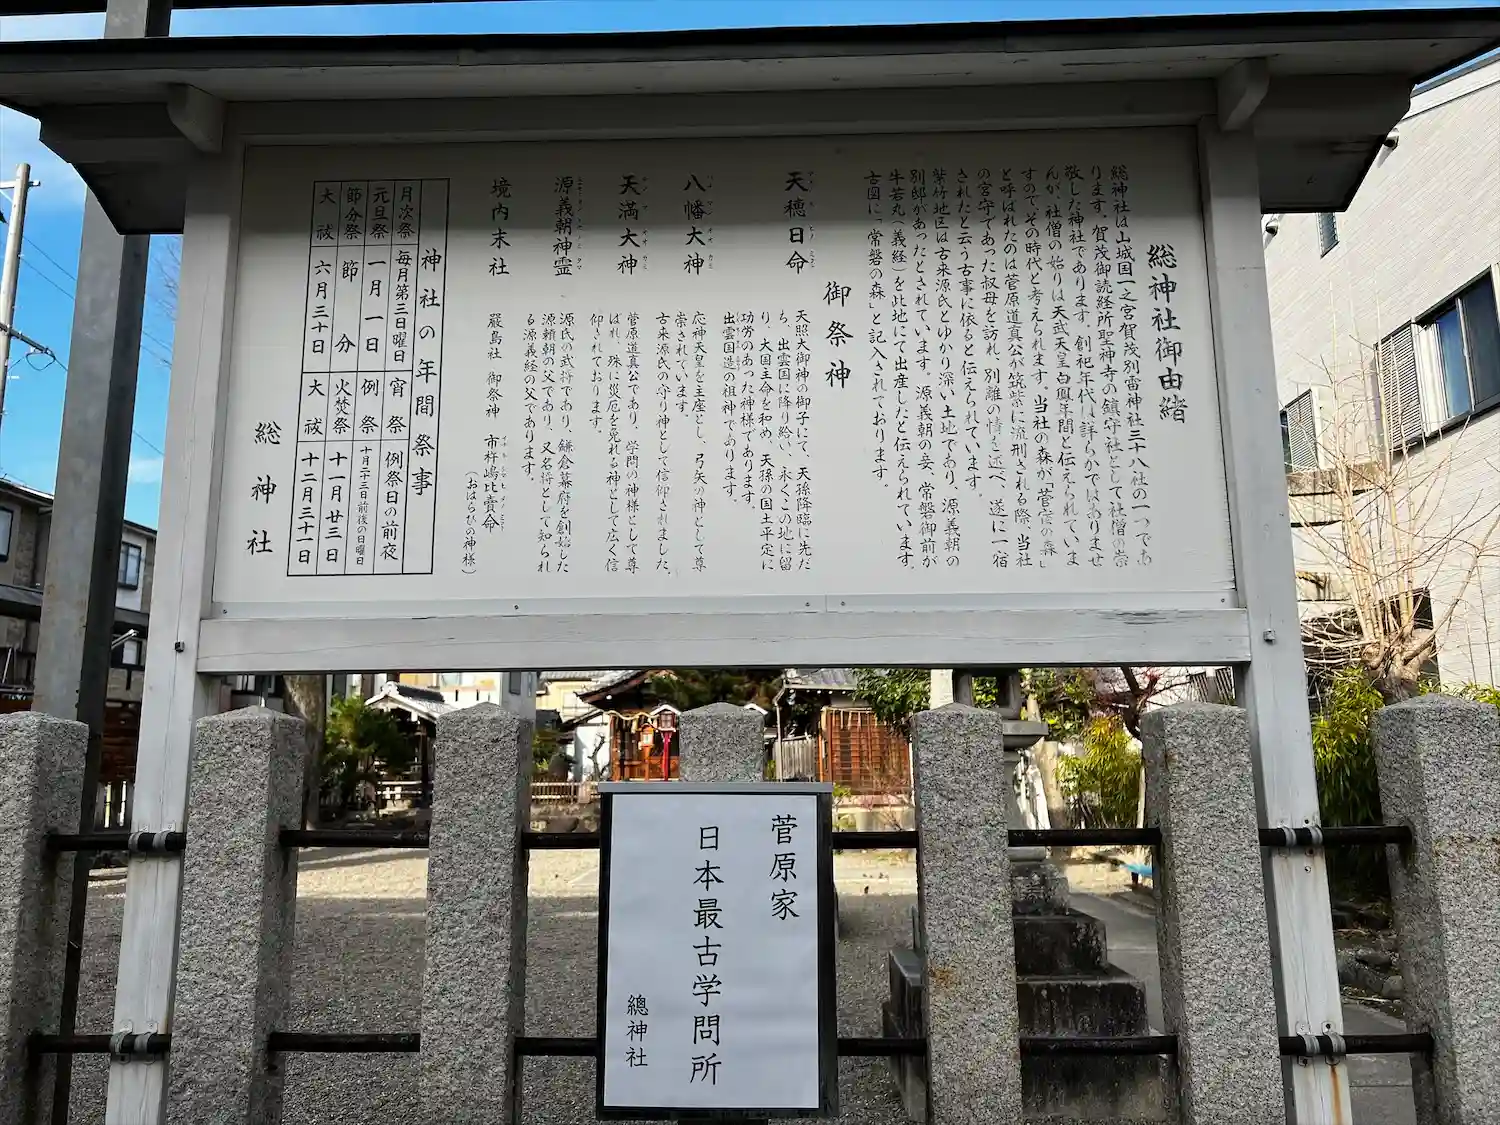 総神社御由緒
総神社は山城国一之宮賀茂別雷神社三十八社の一つであ
ります。賀茂御読経所聖神寺の鎮守社として社僧の崇
敬した神社であります。創祀年代は詳らかではありませ
んが、社僧の始りは天武天皇白鳳年間と伝えられていま
すので、その時代と考えられます。当社の森が「菅宿の森」
と呼ばれたのは菅原道真公が筑紫に流刑される際、当社
の宮守であった叔母を訪れ、別離の情を述べ、遂に一宿
されたと云う古事に依ると伝えられています。
紫竹地区は古来源氏とゆかり深い土地であり、源義朝の
別邸があったとされています。源義朝の妾、常磐御前が
牛若丸(義経)を此地にて出産したと伝えられています。
古図に「常磐の森」と記入されております。
御祭神
天穂日命
天照大御神の御子にて、天孫降臨に先だ
ち、出雲国に降り給い、永くこの地に留
り、大国主命を和め、天孫の国土平定に
功労のあった神様であります。
出雲国造の祖神であります。
八幡大神
応神天皇を主座とし、弓矢の神として尊
崇されています。
古来源氏の守り神として信仰されました。
天満大神
菅原道真公であり、学問の神様として尊
ばれ、殊に災厄を免れる神として広く信
仰されております。
源義朝神霊
源氏の武将であり、鎌倉幕府を創始した
源頼朝の父であり、又名将として知られ
る源義経の父であります。
境内末社
嚴島社 御祭神 市杵嶋比賣命
(おはらひの神様)
神社の年間祭事
月次祭 毎月第三日曜日 宵祭 例祭日の前夜
元旦祭 一月一日 例祭 十月二十三日前後の日曜日
節分祭 節分 火焚祭 十一月廿三日
大祓 六月三十日 大祓 十二月三十一日
総神社
菅原家
日本最古学問所
總神社